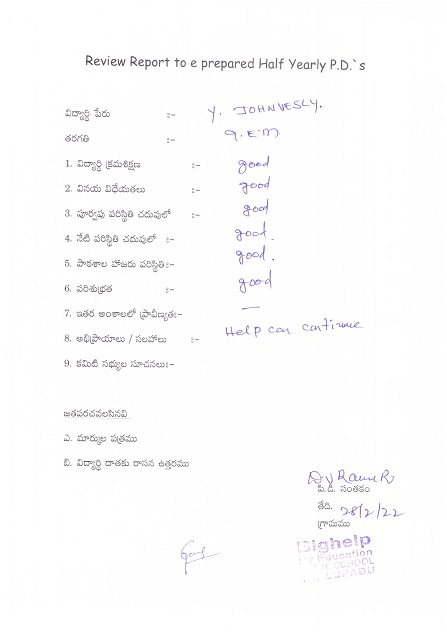 Review Report to e prepared Half Yearly P.D.`s
విద్యార్థి పేరు :- Y. JOHNVESLY.
తరగతి :- 9. E.M
1. విద్యార్థి క్రమశిక్షణ :- good
2. వినయ విధేయతలు :- good
3. పూర్వపు పరిస్థితి చదువులో :- good
4. నేటి పరిస్థితి చదువులో :- good.
5. పాఠశాల హాజరు పరిస్థితి:- good.
6. పరిశుభ్రత :- good
7. ఇతర అంశాలలో ప్రావీణ్యత:- —
8. అభిప్రాయాలు / సలహాలు :- Help can continue
9. కమిటి సభ్యుల సూచనలు:-
జతపరచవలసినవి
ఎ. మార్కుల పత్రము
బి. విద్యార్థి దాతకు రాసిన ఉత్తరము
పి.డి. సంతకం
తేది. 28/2/22
గ్రామము
Dighelp
Education
SCHOOL